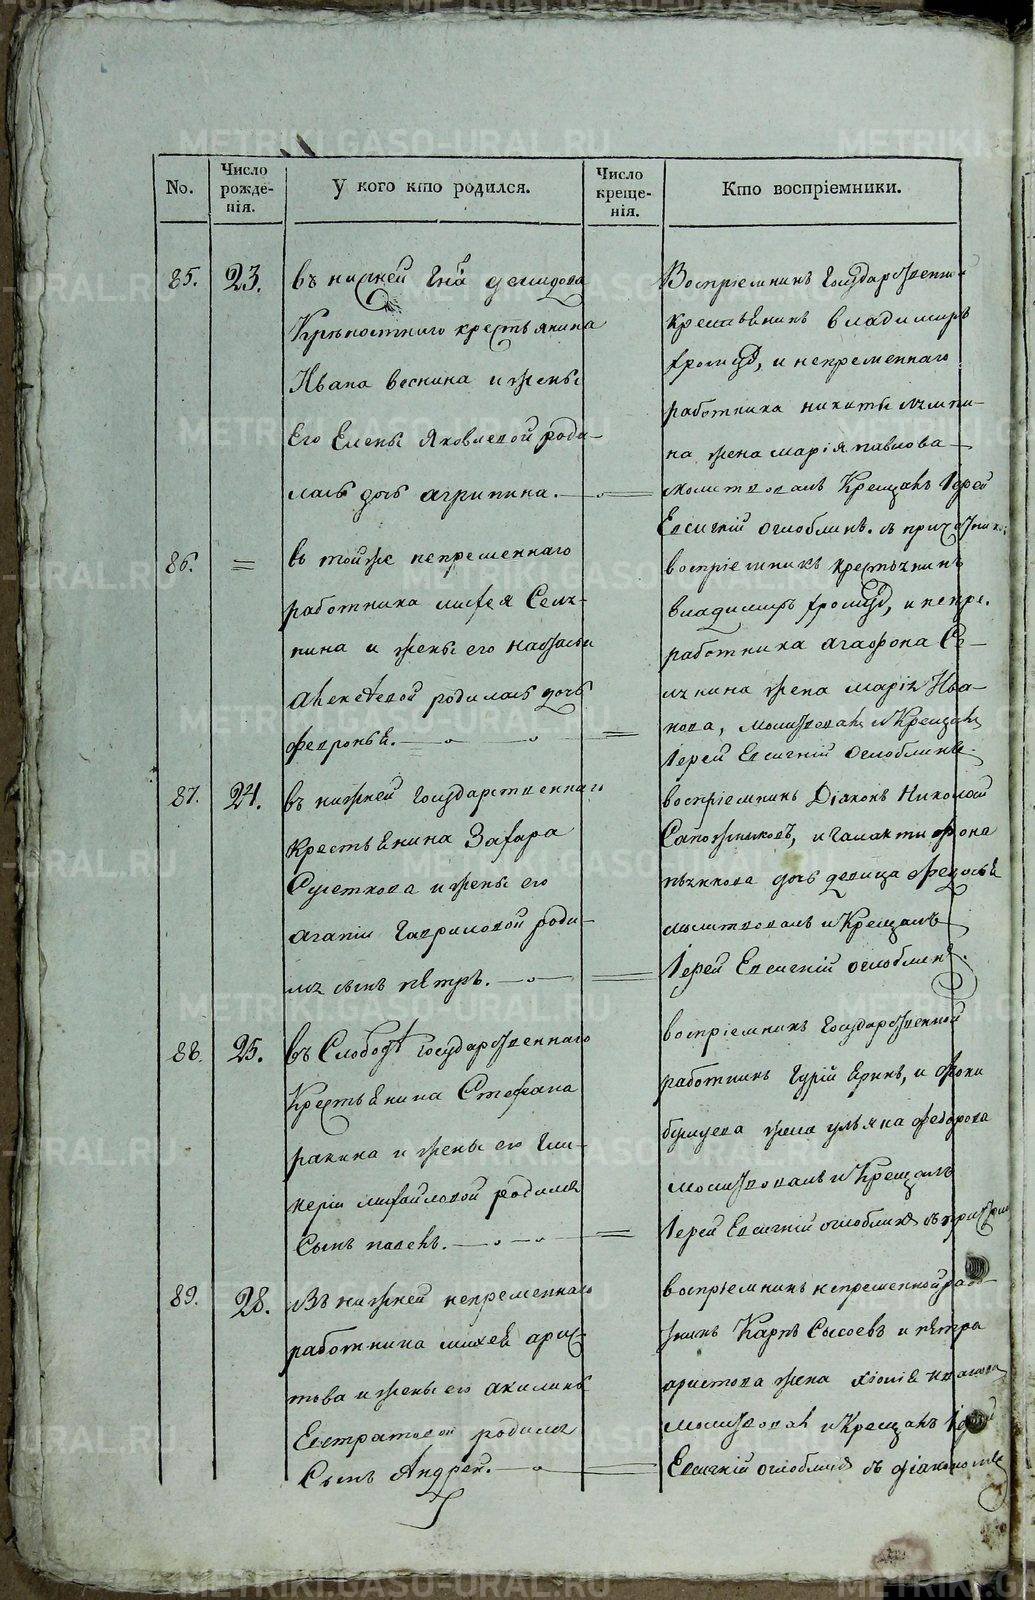 No.
Число рожденія.
У кого кто родился.
Число крещенія.
Кто воспріемники.
85. 23. въ нижней Гна демидова
Крѣпостнаго крестьянина
Ивана веснина и жены
Его Елены Яковлевой роди-
лась дочь агрипина.
Воспріемникъ Государственной
крестьѣнинъ владимиръ
и непременнаго
работника никиты
на жена марія павлова
молитвовалъ Крещалъ Іерей
Евсигній оглоблинъ. съ
86. = въ тойже непременнаго
работника михея Селя-
нина и жены его натальи
Алексѣевой родилась дочь
февроньѣ.
воспріемникъ крестьянинъ
владимиръ и непре.
работника агафона Се-
лянина жена марія Ива-
нова, молитвовалъ и Крещалъ
Іерей Евсигній Оглоблинъ.
87. 24. въ нижней Государственнаго
крестьѣнина Захара
и жены его
агапіи Гавриловой роди-
ля сынъ пѣтръ.
воспріемникъ Діаконъ Николай
Сапожниковъ, и галактифона
дочь девица федосьѣ
молитвовалъ и Крещалъ
Іерей Евсигній оглоблинъ.
88. 25. въ Слободѣ государственнаго
Крестьѣнина Стефана
ракина и жены его Гли-
керіи михайловой родился
Сынъ павелъ.
воспріемникъ Государственной
работникъ Гурій и фоки
жена ульяна федорова
молитвовалъ и Крещалъ
Іерей Евсигній оглоблинъ съ
89. 28. Въ нижней непременнаго
работника михеѣ арис-
това и жены его акилины
Евстратовой родился
Сынъ Андрей.
воспріемникъ непременной рабо-
тникъ Карпъ Сысоевъ и пѣтра
аристова жена хіоніѣ
молитвовалъ и Крещалъ Іерей
Евсигній оглоблинъ съ діакономъ
METRIKI.GASO-URAL.RU